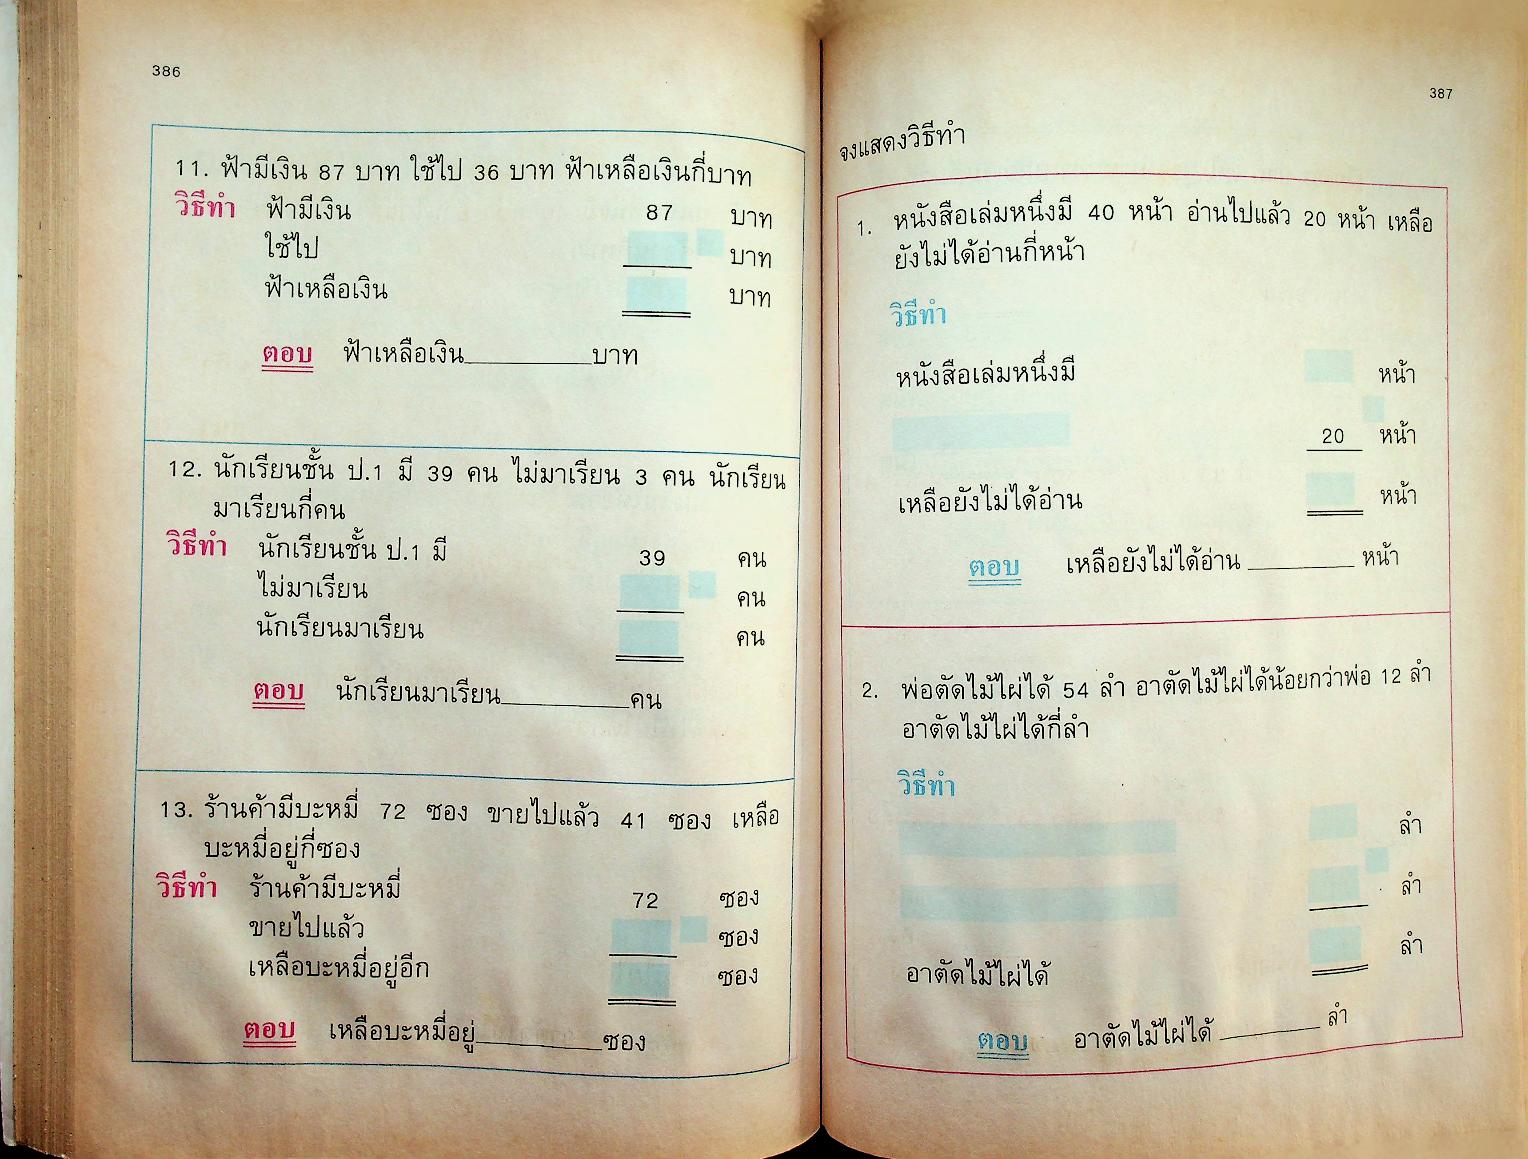 386
11. ฟ้ามีเงิน 87 บาท ใช้ไป 36 บาท ฟ้าเหลือเงินกี่บาท
วิธีทำ ฟ้ามีเงิน 87 บาท
ใช้ไป บาท
ฟ้าเหลือเงิน บาท
ตอบ ฟ้าเหลือเงิน__________บาท
12. นักเรียนชั้น ป.1 มี 39 คน ไม่มาเรียน 3 คน นักเรียน
มาเรียนกี่คน
วิธีทำ นักเรียนชั้น ป.1 มี 39 คน
ไม่มาเรียน คน
นักเรียนมาเรียน คน
ตอบ นักเรียนมาเรียน__________คน
13. ร้านค้ามีบะหมี่ 72 ซอง ขายไปแล้ว 41 ซอง เหลือ
บะหมี่อยู่กี่ซอง
วิธีทำ ร้านค้ามีบะหมี่ 72 ซอง
ขายไปแล้ว ซอง
เหลือบะหมี่อยู่อีก ซอง
ตอบ เหลือบะหมี่อยู่__________ซอง
387
จงแสดงวิธีทำ
1. หนังสือเล่มหนึ่งมี 40 หน้า อ่านไปแล้ว 20 หน้า เหลือ
ยังไม่ได้อ่านกี่หน้า
วิธีทำ
หนังสือเล่มหนึ่งมี หน้า
20 หน้า
เหลือยังไม่ได้อ่าน หน้า
ตอบ เหลือยังไม่ได้อ่าน __________ หน้า
2. พ่อตัดไม้ไผ่ได้ 54 ลำ อาตัดไม้ไผ่ได้น้อยกว่าพ่อ 12 ลำ
อาตัดไม้ไผ่ได้กี่ลำ
วิธีทำ
ลำ
ลำ
อาตัดไม้ไผ่ได้ ลำ
ตอบ อาตัดไม้ไผ่ได้ __________ ลำ